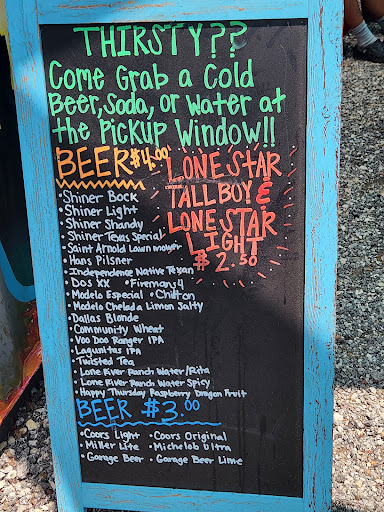 THIRSTY??
Come Grab a Cold
Beer, Soda, or Water at
the Pickup Window!!
BEER $4.00
LONE STAR
TALL BOY &
LONE STAR
LIGHT
$2.50
• Shiner Bock
• Shiner Light
• Shiner Shandy
• Shiner Texas Special
• Saint Arnold Lawnmower
• Hans Pilsner
• Independence Native Texan
• Dos XX • Firemans 4
• Modelo Especial • Chilton
• Modelo Chelada Limon Salty
• Dallas Blonde
• Community Wheat
• Voo Doo Ranger IPA
• Lagunitas IPA
• Twisted Tea
• Lone River Ranch Water/Rita
• Lone River Ranch Water Spicy
• Happy Thursday Raspberry Dragon Fruit
BEER $3.00
• Coors Light • Coors Original
• Miller Lite • Michelob Ultra
• Garage Beer • Garage Beer Lime